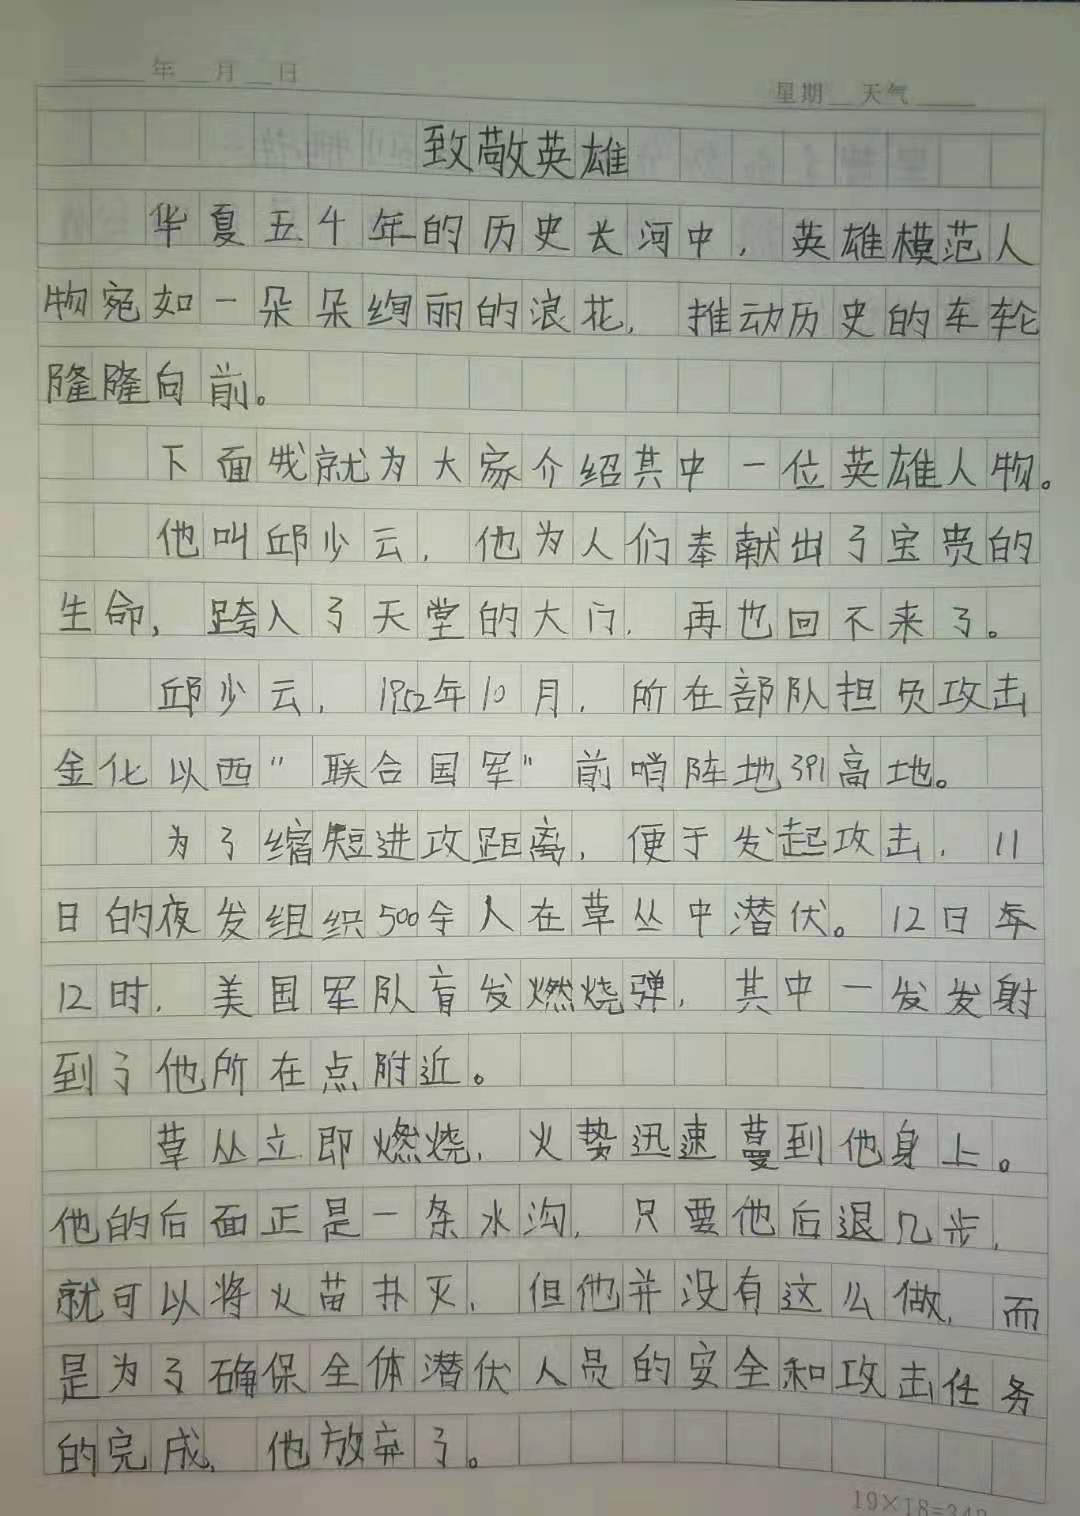 年 月 日
星期 天气
致敬英雄
华夏五千年的历史长河中，英雄模范人
物宛如一朵朵绚丽的浪花，推动历史的车轮
隆隆向前。
下面我就为大家介绍其中一位英雄人物。
他叫邱少云，他为人们奉献出了宝贵的
生命，跨入了天堂的大门，再也回不来了。
邱少云，1952年10月，所在部队担负攻击
金化以西"联合国军"前哨阵地391高地。
为了缩短进攻距离，便于发起攻击，11
日的夜发组织500余人在草丛中潜伏。12日年
12时，美国军队盲发燃烧弹，其中一发发射
到了他所在点附近。
草丛立即燃烧，火势迅速蔓到他身上。
他的后面正是一条水沟，只要他后退几步，
就可以将火苗扑灭，但他并没有这么做，而
是为了确保全体潜伏人员的安全和攻击任务
的完成，他放弃了。